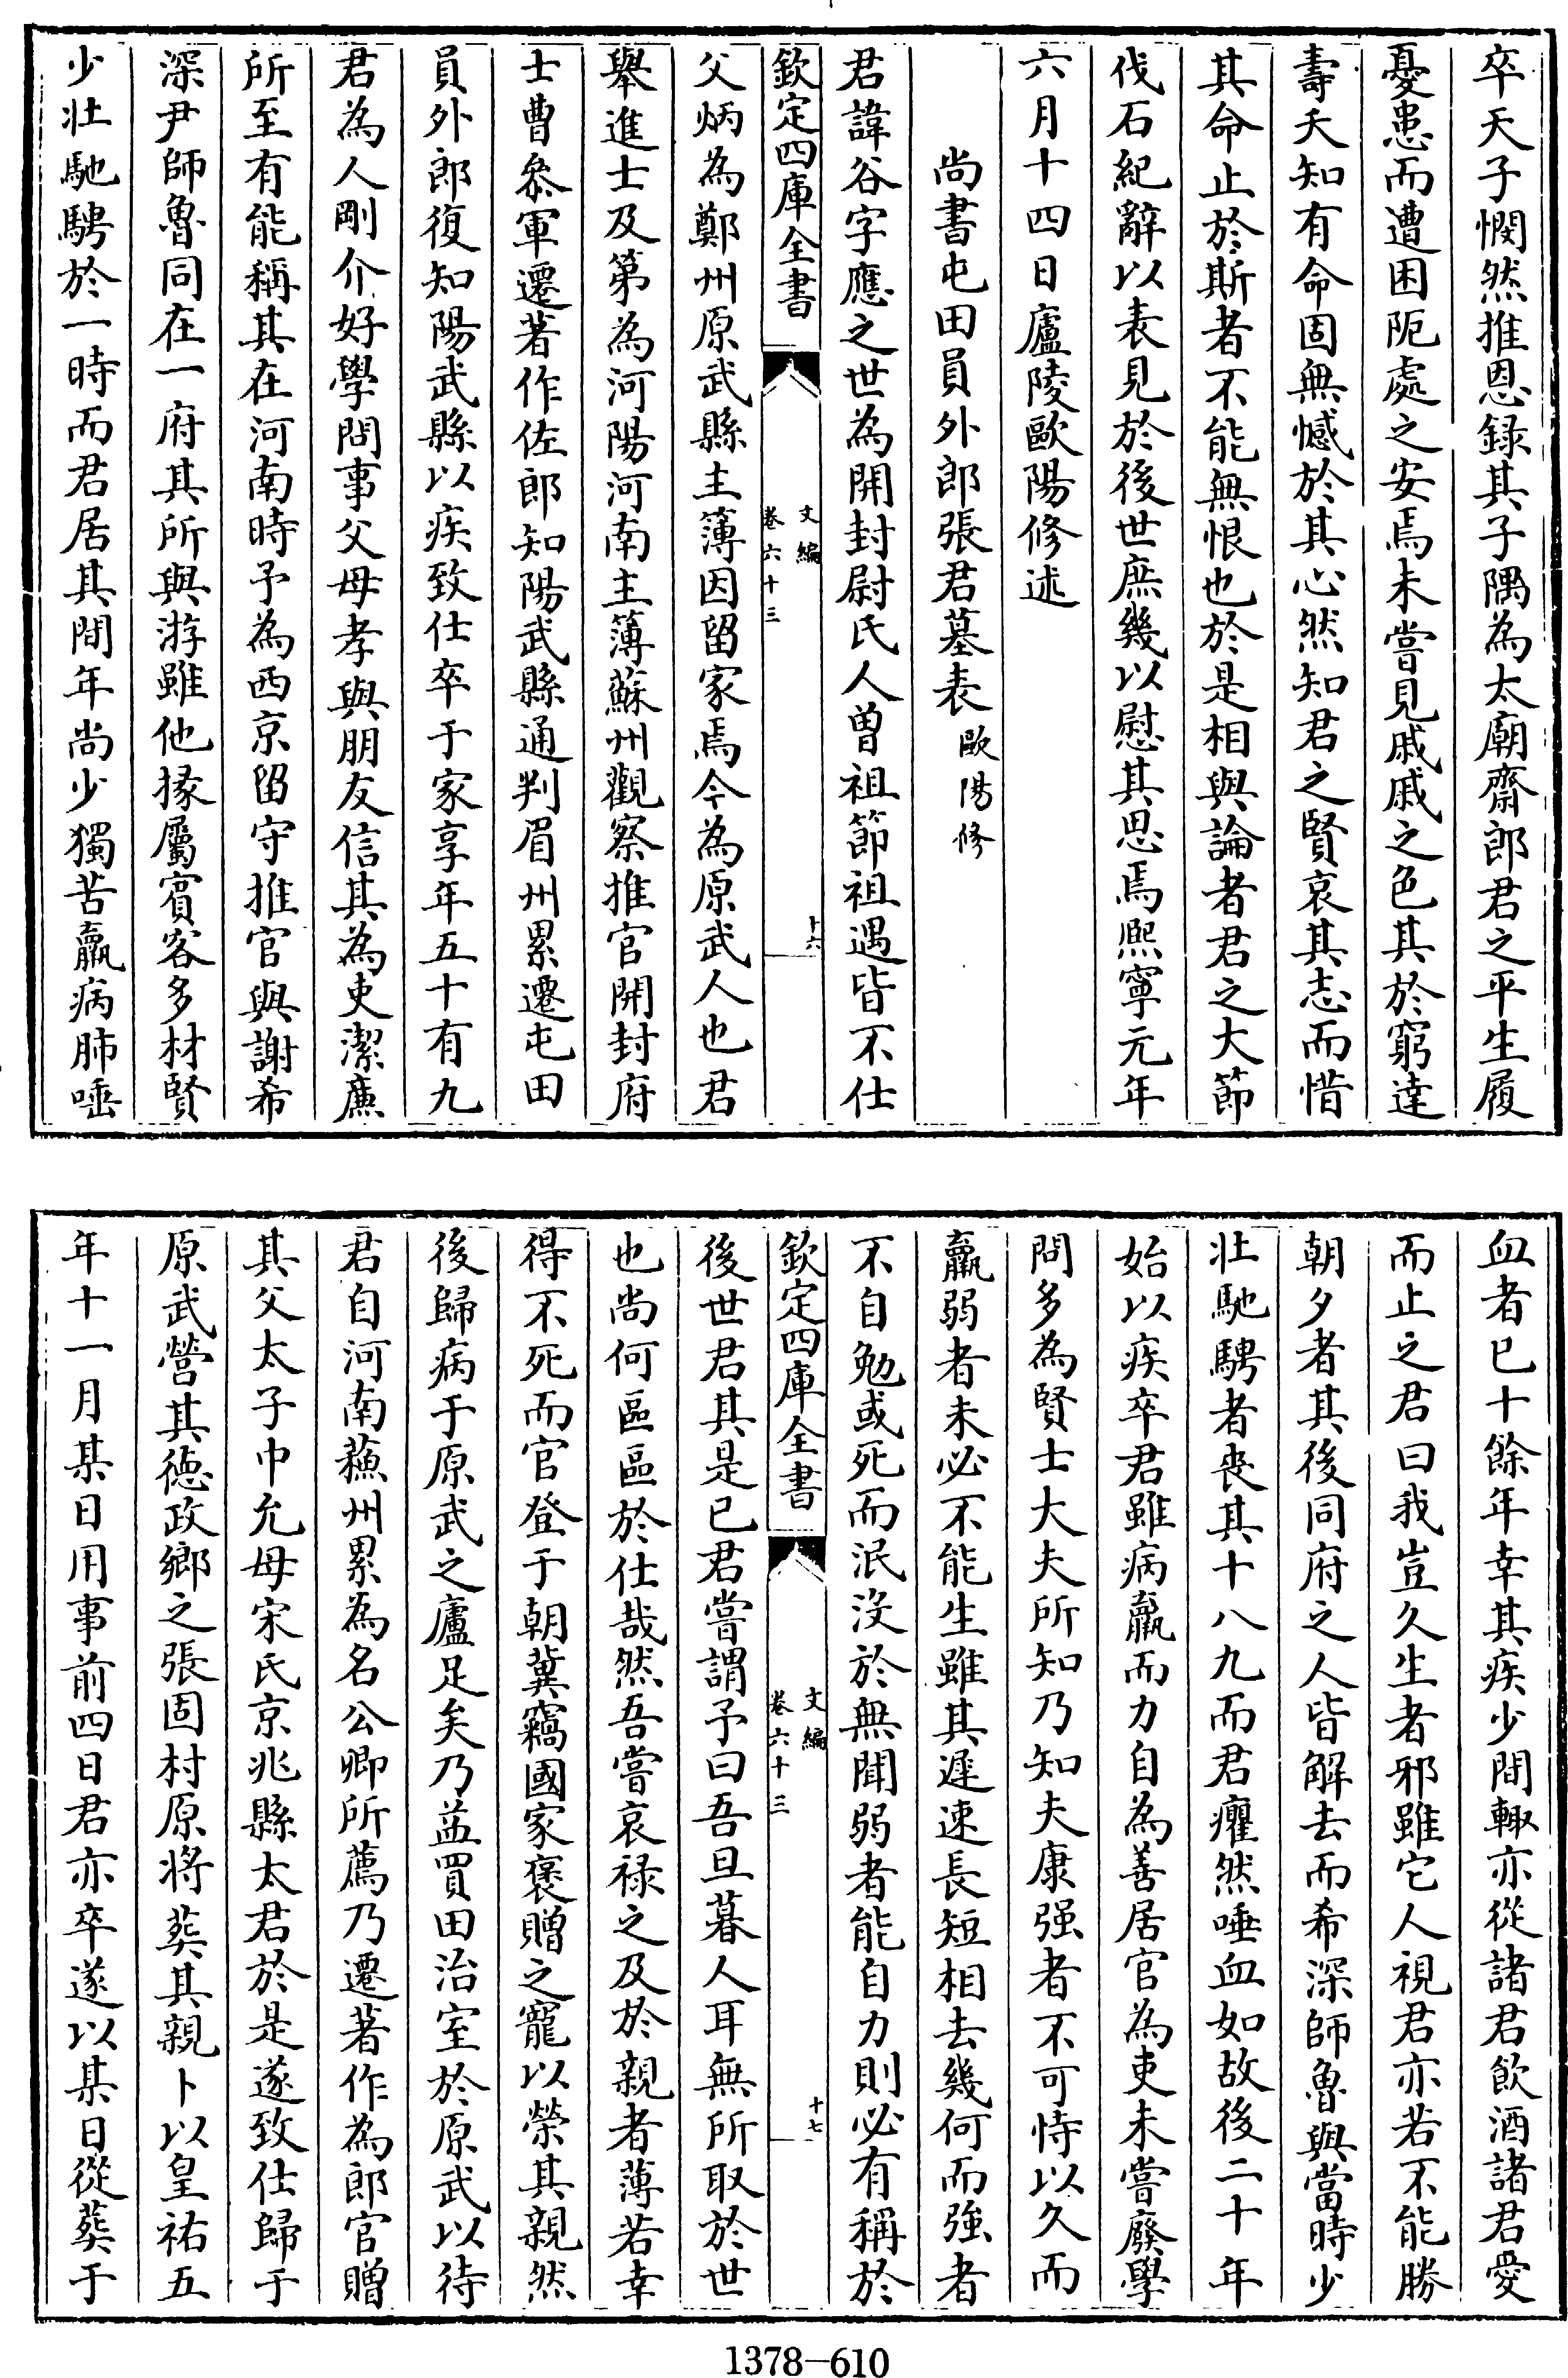 卒天子憫然推恩錄其子隅為太廟齋郎君之平生履
憂患而遭困阨處之安焉未嘗見戚戚之色其於窮達
壽夭知有命固無憾於其心然知君之賢哀其志而惜
其命止於斯者不能無恨也於是相與論者君之大節
伐石紀辭以表見於後世庶幾以慰其思焉熙寧元年
六月十四日廬陵歐陽修述
尚書屯田員外郎張君墓表歐陽修
君諱谷字應之世為開封尉氏人曾祖節祖遇皆不仕
欽定四庫全書
文編
卷六十三
十六
父炳為鄭州原武縣主簿因留家焉今為原武人也君
舉進士及第為河陽河南主簿蘇州觀察推官開封府
士曹叅軍遷著作佐郎知陽武縣通判眉州累遷屯田
員外郎復知陽武縣以疾致仕卒于家享年五十有九
君為人剛介好學問事父母孝與朋友信其為吏潔廉
所至有能稱其在河南時予為西京留守推官與謝希
深尹師魯同在一府其所與游雖他掾屬賓客多材賢
少壯馳騁於一時而君居其間年尚少獨苦羸病肺唾
血者已十餘年幸其疾少間輙亦從諸君飲酒諸君愛
而止之君曰我豈久生者邪雖它人視君亦若不能勝
朝夕者其後同府之人皆解去而希深師魯與當時少
壯馳騁者喪其十八九而君癯然唾血如故後二十年
始以疾卒君雖病羸而力自為善居官為吏未嘗廢學
問多為賢士大夫所知乃知夫康强者不可恃以久而
羸弱者未必不能生雖其遲速長短相去幾何而強者
不自勉或死而泯沒於無聞弱者能自力則必有稱於
欽定四庫全書
文編
卷六十三
十七
後世君其是已君嘗謂予曰吾旦暮人耳無所取於世
也尚何區區於仕哉然吾嘗哀禄之及於親者薄若幸
得不死而官登于朝冀竊國家褒贈之寵以榮其親然
後歸病于原武之廬足矣乃益買田治室於原武以待
君自河南蘓州累為名公卿所薦乃遷著作為郎官贈
其父太子中允母宋氏京兆縣太君於是遂致仕歸于
原武營其德政鄉之張固村原將葬其親卜以皇祐五
年十一月某日用事前四日君亦卒遂以某日從葬于
1378—610